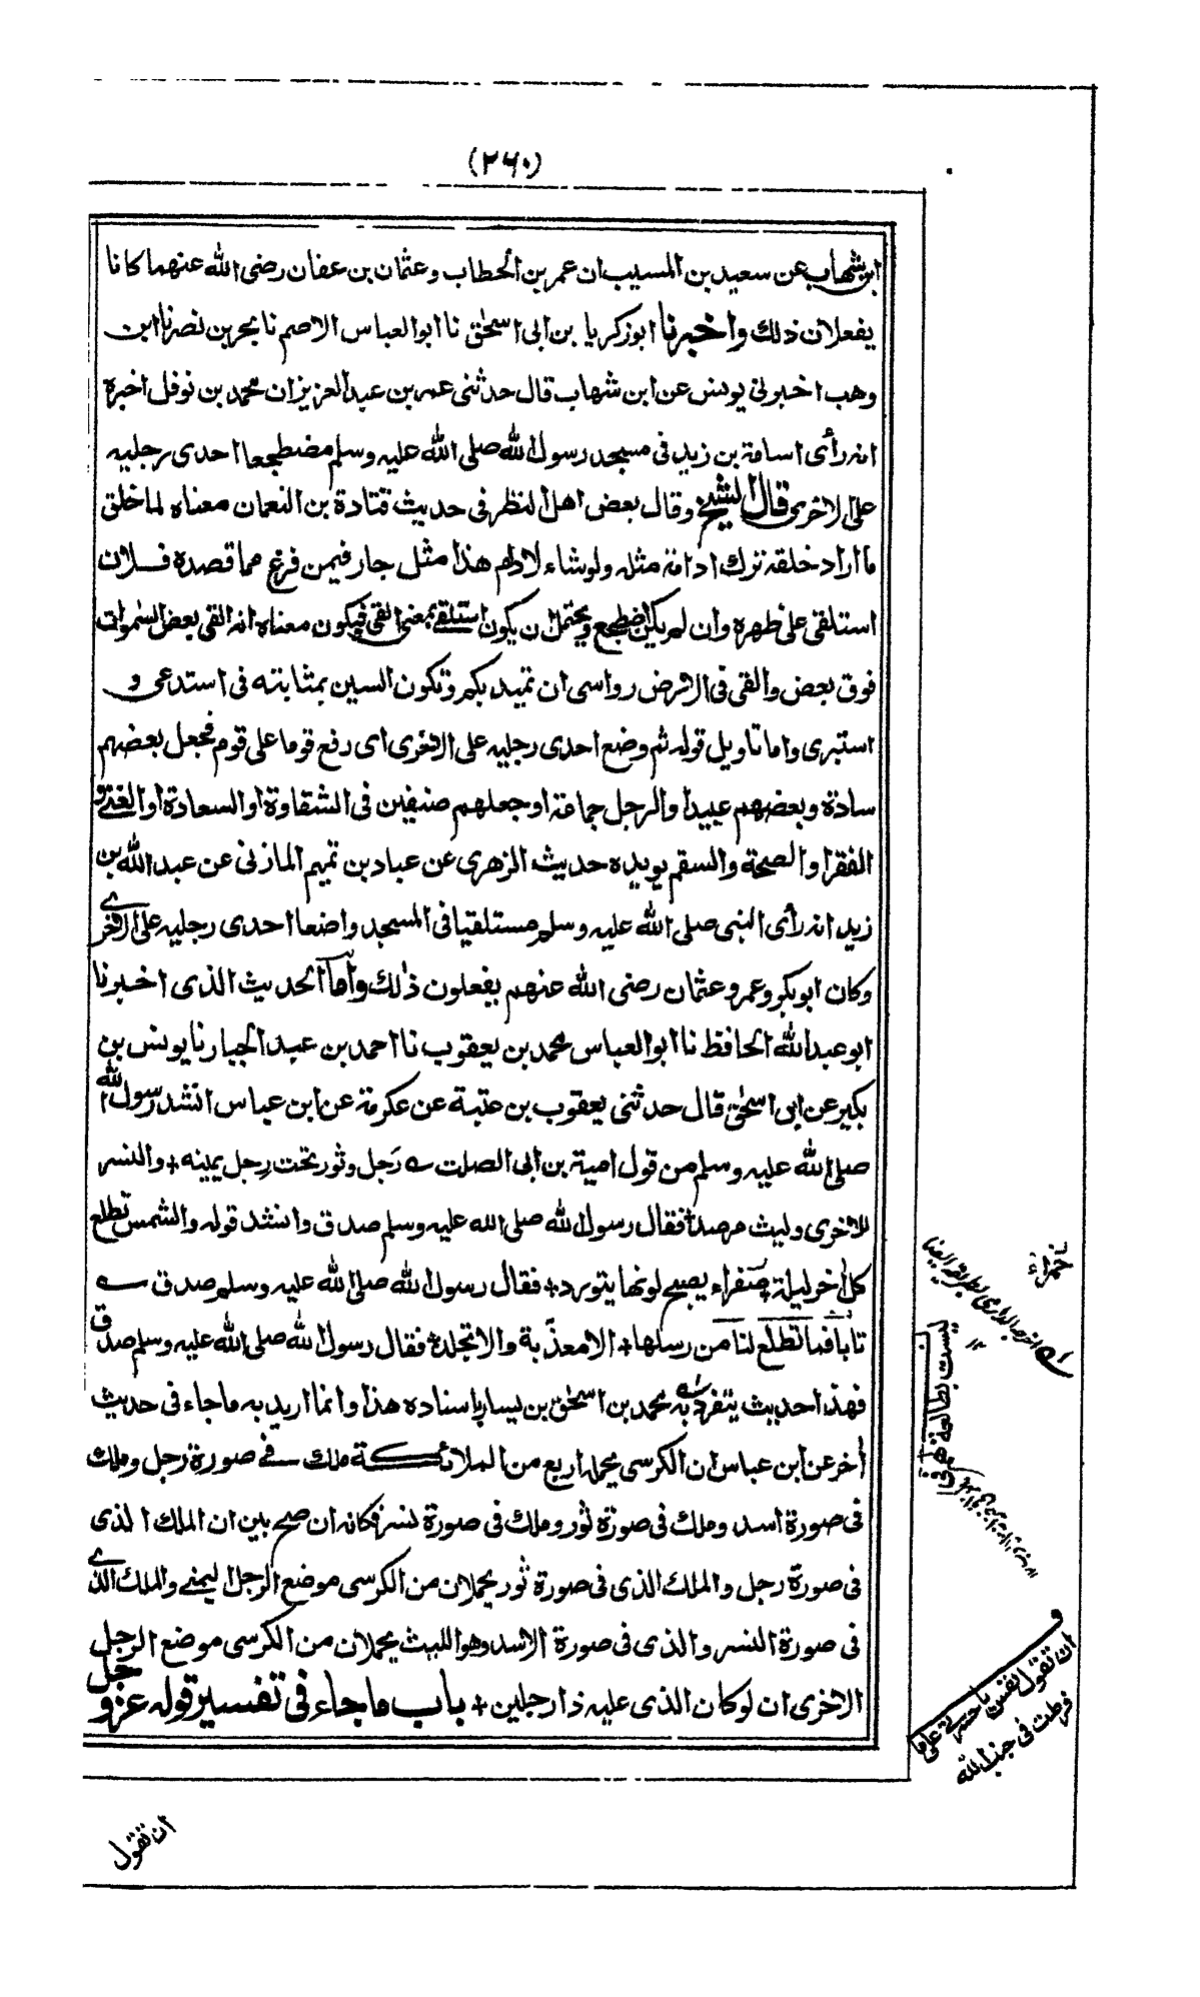 (٢٦٠)
ابن شهاب عن سعيد بن المسيب ان عمر بن الخطاب وعثمان بن عفان رضى الله عنهما كانا
يفعلان ذلك واخبرنا ابو زكريا بن ابى اسحٰق نا ابو العباس الاصم نا بحر بن نصر نا ابن
وهب اخبرنى يونس عن ابن شهاب قال حدثنى عمر بن عبد العزيز ان محمد بن نوفل اخبره
انه رأى اسامة بن زيد فى مسجد رسول الله صلى الله عليه وسلم مضطجعا احدى رجليه
على الاخرى قال الشيخ وقال بعض اهل النظر فى حديث قتادة بن النعمان معناه لما خلق
ما اراد خلقه ترك ادامة مثله ولو شاء لادام هذا مثل جار فيمن فرغ مما قصده فلان
استلقى على ظهره وان لم يكن اضطجع ويحتمل ان يكون استلقى بمعنى القى فيكون معناه انه القى بعض السموات
فوق بعض والقى فى الارض رواسى ان تميد بكم وتكون السين بمثابته فى استدعى و
استبرى واما تاويل قوله ثم وضع احدى رجليه على الاخرى اى رفع قوما على قوم فجعل بعضهم
سادة وبعضهم عبيدا والرجل جماعة او جعلهم صنفين فى الشقاوة او السعادة او الغنى و
الفقر او الصحة والسقم يويده حديث الزهرى عن عباد بن تميم المازنى عن عبد الله بن
زيد انه رأى النبى صلى الله عليه وسلم مستلقيا فى المسجد واضعا احدى رجليه على الاخرى
وكان ابو بكر وعمر وعثمان رضى الله عنهم يفعلون ذلك واما الحديث الذى اخبرنا
ابو عبد الله الحافظ نا ابو العباس محمد بن يعقوب نا احمد بن عبد الجبار نا يونس بن
بكير عن ابن اسحٰق قال حدثنى يعقوب بن عتبة عن عكرمة عن ابن عباس انشد رسول الله
صلى الله عليه وسلم من قول امية بن ابى الصلت رَجل وثور تحت رِجل يمينه + والنسر
للاخرى وليث مرصد + فقال رسول الله صلى الله عليه وسلم صدق وانشد قوله والشمس تطلع
كل اخر ليلة + صفراء يصبح لونها يتورد + فقال رسول الله صلى الله عليه وسلم صدق
تابا فما تطلع لنا من رسلها + الا معذّبة والا تجلد + فقال رسول الله صلى الله عليه وسلم صدق
فهذا حديث يتفرد به محمد بن اسحٰق بن يسار باسناده هذا وانما اريد به ما جاء فى حديث
أخر عن ابن عباس ان الكرسى يحمله اربع من الملائكة ملك فى صورة رجل وملك
فى صورة اسد وملك فى صورة ثور وملك فى صورة نسر فكانه ان صح بين ان الملك الذى
فى صورة رجل والملك الذى فى صورة ثور يحملان من الكرسى موضع الرجل اليمنى والملك الذى
فى صورة النسر والذى فى صورة الاسد وهو الليث يحملان من الكرسى موضع الرجل
الاخرى ان لو كان الذى عليه ذا رجلين + باب ما جاء فى تفسير قوله عز وجل
ليست بطالعة لهم فى
ان تقول نفس يا حسرتى على ما
فرطت فى جنب الله
ان تقول